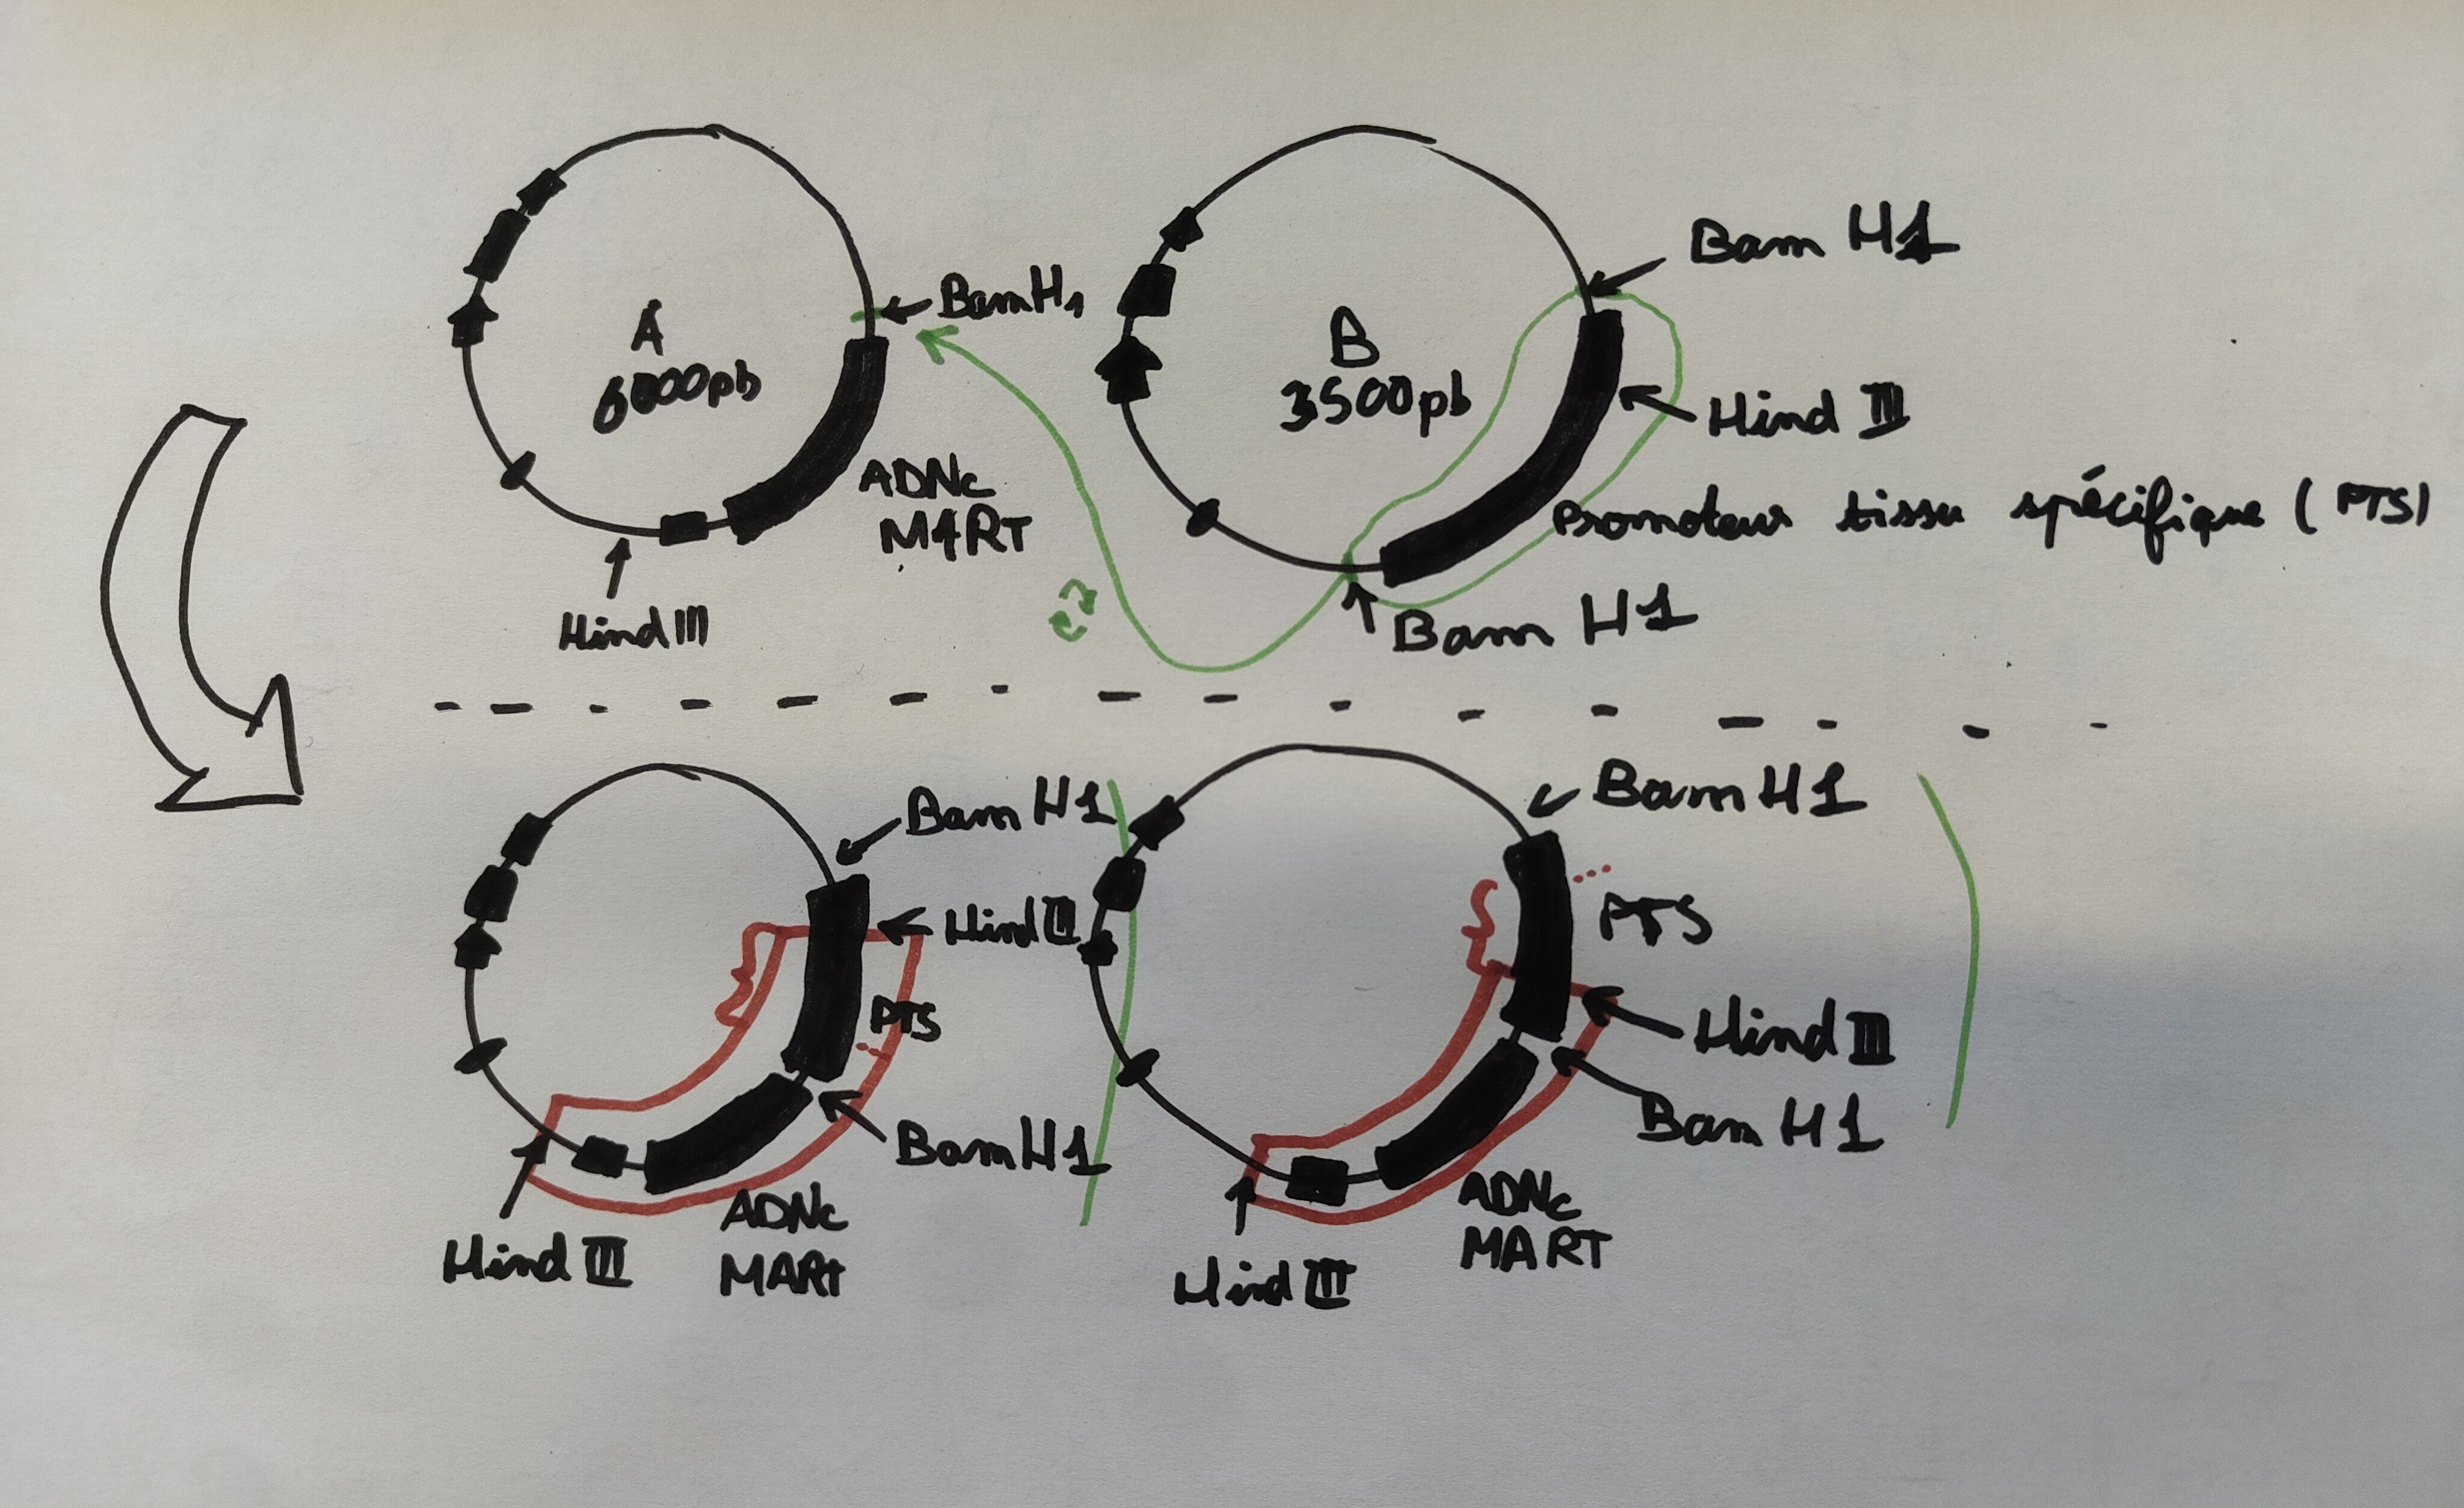 A
6000pb
BamH1
ADNc
MART
Hind III
B
3500pb
Bam H1
Hind III
Promoteur tissu spécifique (PTS)
Bam H1
Bam H1
Hind III
PTS
Bam H1
ADNc
MART
Hind III
Bam H1
PTS
Hind III
Bam H1
ADNc
MART
Hind III